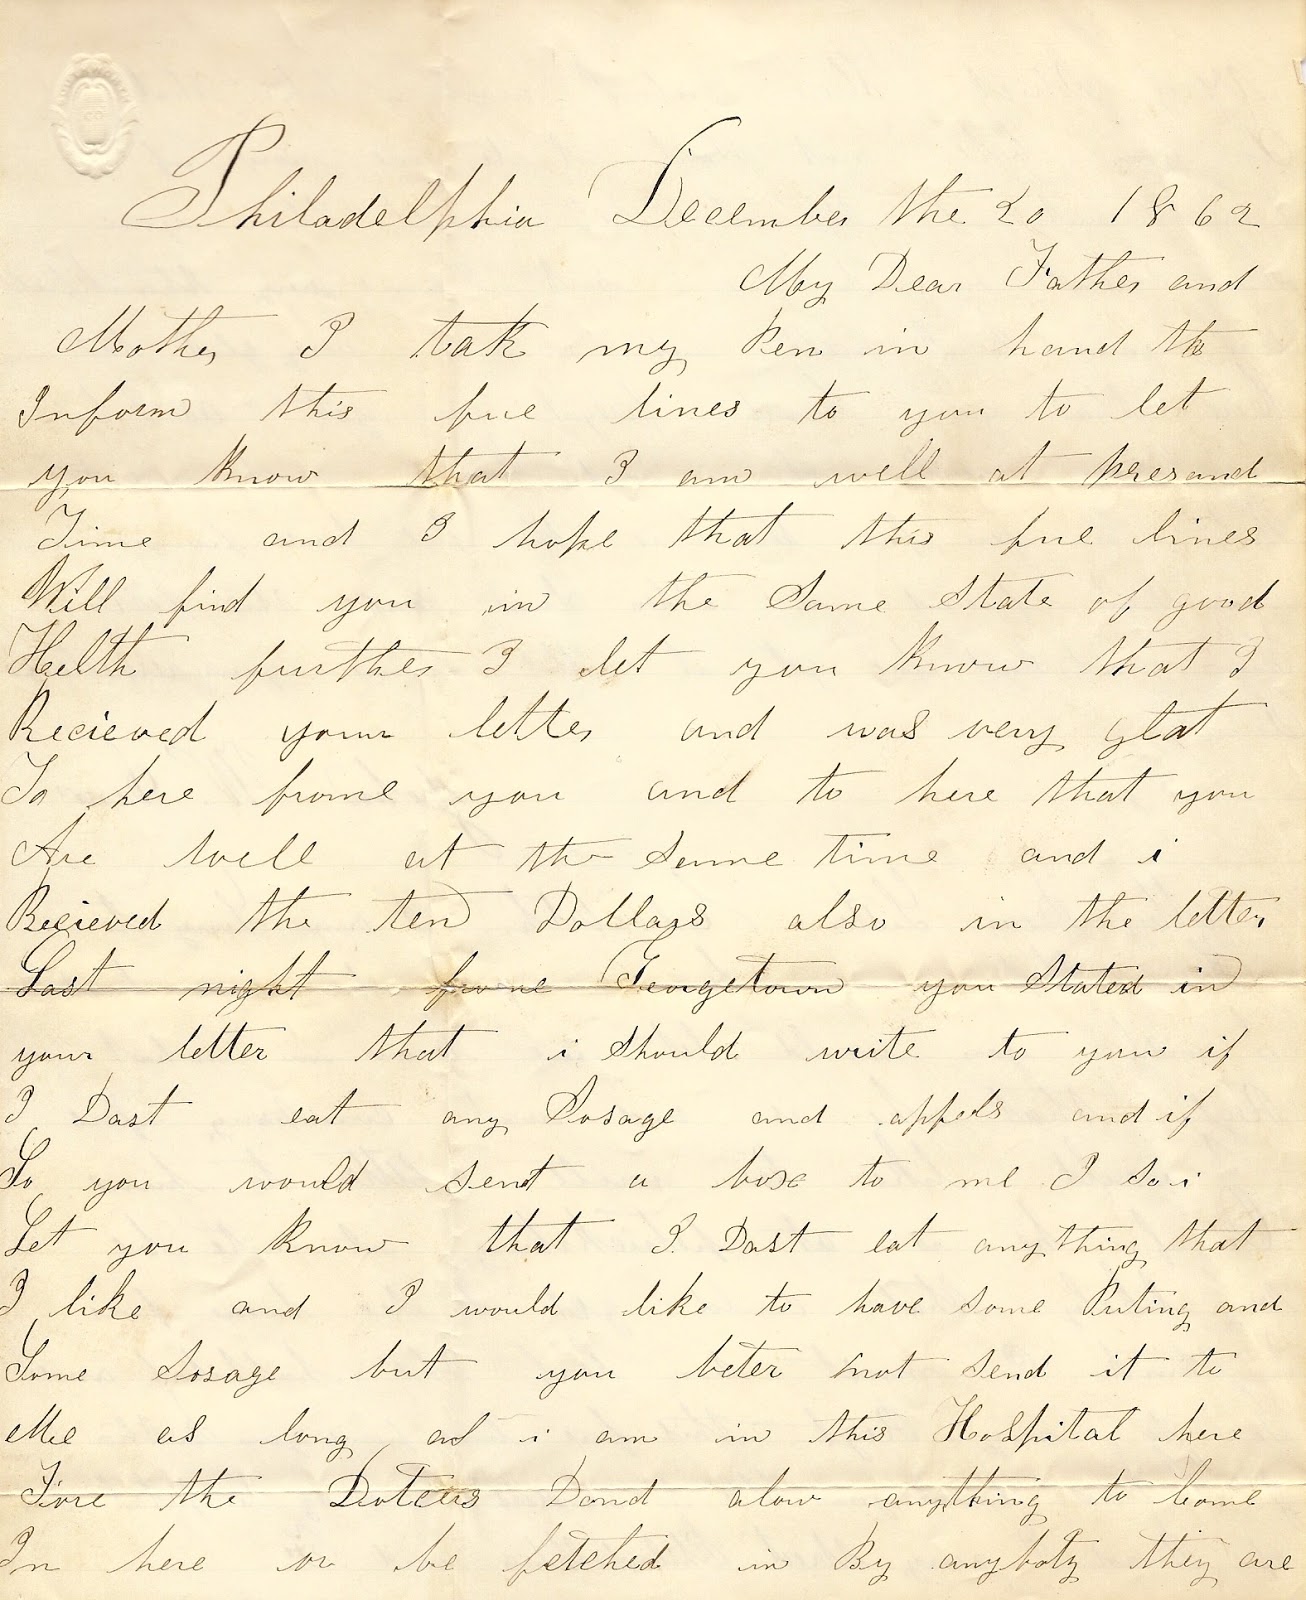 Philadelphia December the 20 1862
My Dear Father and
Mother I take my Pen in hand the
Inform this fue lines to you to let
you know that I am well at presand
Time and I hope that this fue lines
Will find you in the Same State of good
Helth further I let you know that I
Recieved your letter and was very glat
To here frome you and to here that you
Are well at the Seme time and i
Recieved the ten Dollars also in the letter
Last night frome Georgetown you Stated in
your letter that i should write to you if
I Dast eat any Sosage and appels and if
So you would sent a boxe to me I so i
Let you know that I Dast eat anything that
I like and I would like to have some Puting and
Some Sosage but you beter not send it to
Me as long as i am in this Hospital here
Fore the Docters Dond alow anything to Come
In here or be fetched in By anyboty they are